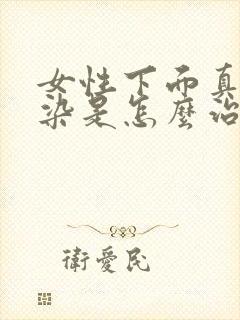 女性下面真
染是怎麼治
衛愛民